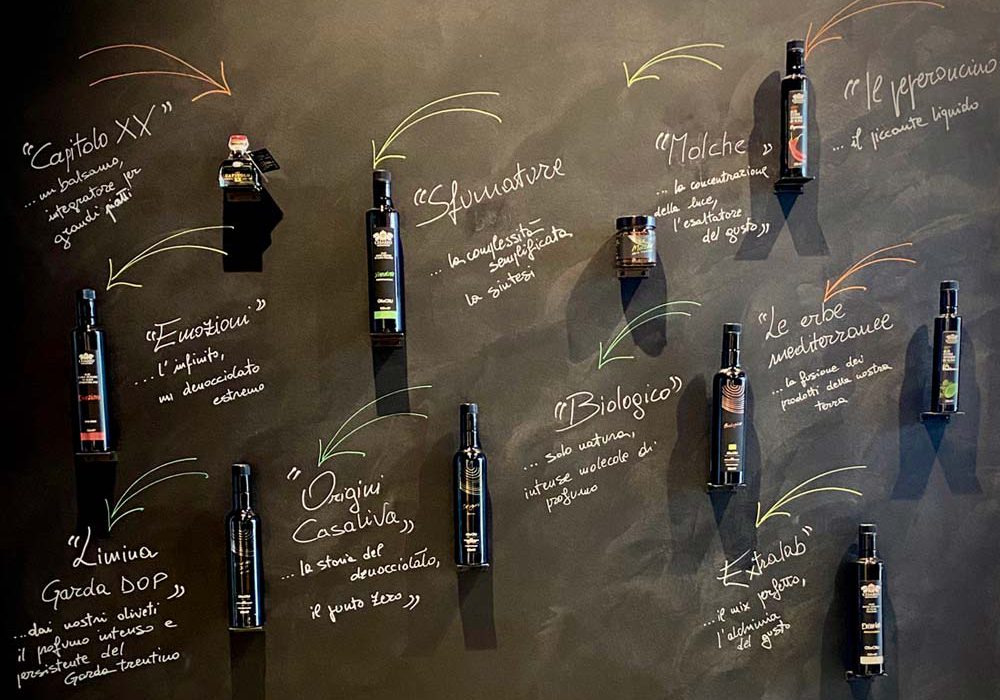 "Capitolo XX"
...un balsamo,
integratore per
grandi piatti
CAPITOLO
"Sfumature
... la complessità
semplificata
la sintesi
"Molche"
... la concentrazione
della luce,
l'esaltatore
del gusto"
"Il peperoncino
... il piccante liquido
"Emozioni"
... l'infinito,
un denocciolato
estremo
"Le erbe
mediterranee
... la fusione dei
prodotti della nostra
terra
"Biologico"
... solo natura,
intense molecole di
profumo
"Origini
Casaliva"
... la storia del
denocciolato,
il punto zero"
"Limina
Garda DOP"
...dai nostri oliveti
il profumo intenso e
persistente del
Garda trentino
"Extralab"
... il mix perfetto,
l'alchimia
del gusto